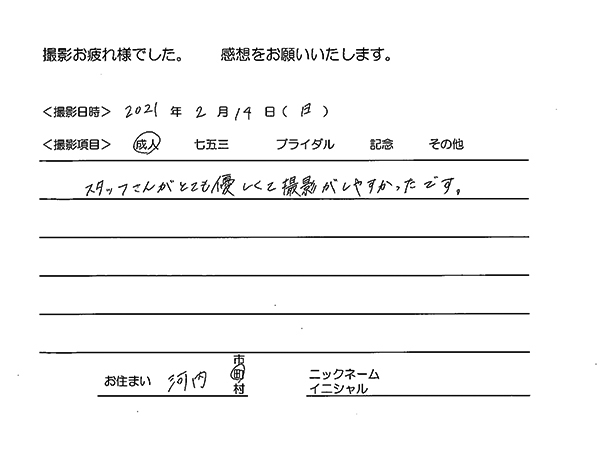 撮影お疲れ様でした。　感想をお願いいたします。
＜撮影日時＞ 2021 年 2 月 14 日（ 日 ）
＜撮影項目＞ 成人 七五三 ブライダル 記念 その他
スタッフさんがとても優しくて撮影がしやすかったです。
お住まい 河内 市 町 村 ニックネーム
イニシャル